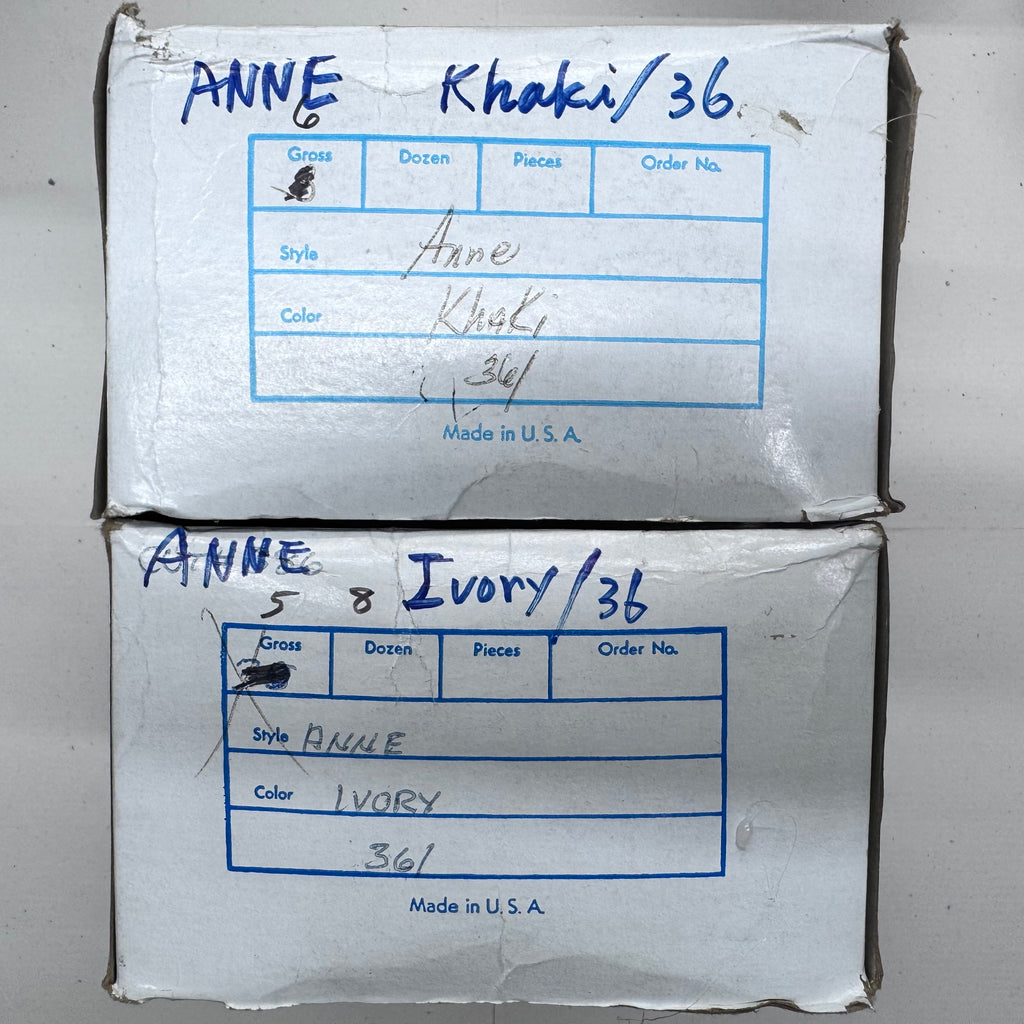 ANNE Khaki/36
6
Gross Dozen Pieces Order No.
Style Anne
Color Khaki
36/
Made in U. S. A.
ANNE Ivory/36
5 8
Gross Dozen Pieces Order No.
Style ANNE
Color IVORY
36/
Made in U. S. A.